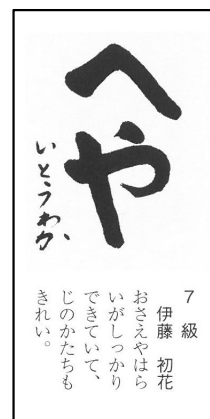 へや
いとうわか
7級
伊藤 初花
おさえやはら
いがしっかり
できていて、
じのかたちも
きれい。